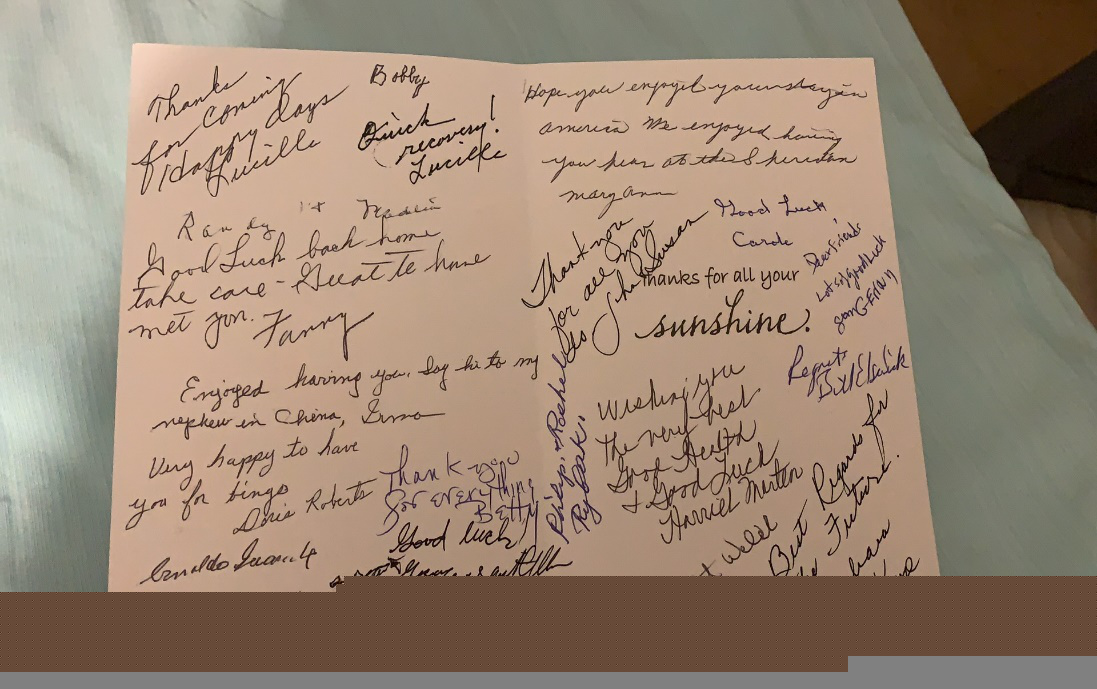 Thanks
for coming
Happy Days
Lucille
Bobby
Quick
recovery!
Lucille
Randy
Good Luck back home
take care - Great to have
met you.
Fanny
Enjoyed having you, Say hi to my
nephew in China, Irma
Very happy to have
you for bingo
Doris Roberts
Thank you
for everything
Betty
Good luck
Hope you enjoyed your stay in
america We enjoyed having
you hear at the Sheridan
mary ann
Thank you
for all you
do
Susan
Good Luck
Carole
Dear Friends
Lots of good luck
thanks for all your
sunshine.
Regards
Bill
Wishing you
the very best
Good Health
& Good Luck
Harriet Merton
Best Regards for
the Future.